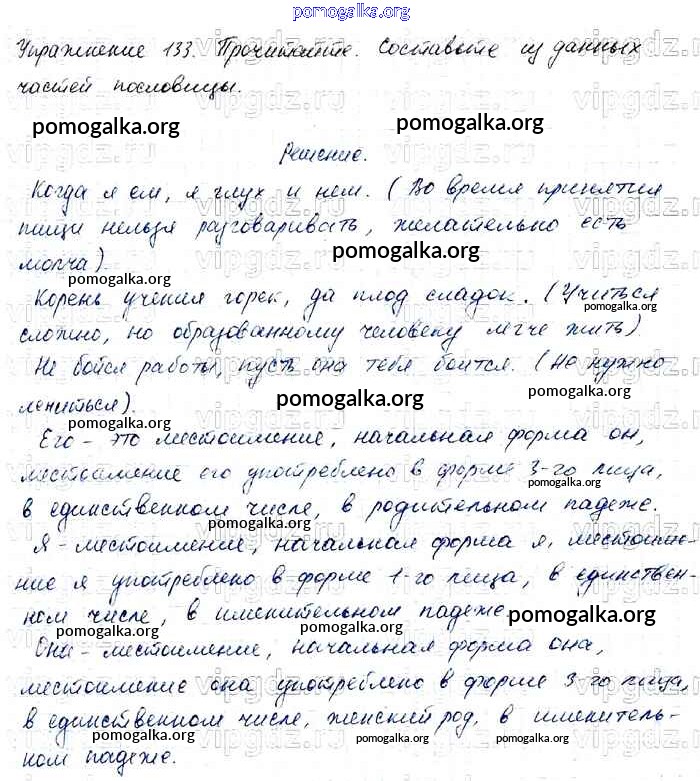 pomogalka.org
Упражнение 133. Прочитайте. Составьте из данных
частей пословицы.
pomogalka.org
pomogalka.org
Решение.
Когда я ем, я глух и нем. (Во время принятия
пищи нельзя разговаривать, желательно есть
pomogalka.org
молча).
pomogalka.org
Корень учения горек, да плод сладок. (Учиться
pomogalka.org
сложно, но образованному человеку легче жить).
pomogalka.org
Не бойся работы, пусть она тебя боится. (Не нужно
pomogalka.org
pomogalka.org
лениться).
Его - это местоимение, начальная форма он,
местоимение его употреблено в форме 3-го лица,
pomogalka.org
в единственном числе, в родительном падеже.
pomogalka.org
Я - местоимение, начальная форма я, местоиме-
ние я употреблено в форме 1-го лица, в единствен-
ном числе, в именительном падеже
pomogalka.org
pomogalka.org
pomogalka.org
Она - местоимение, начальная форма она,
местоимение она употреблено в форме 3-го лица,
в единственном числе, женский род, в именитель-
pomogalka.org
ном падеже.